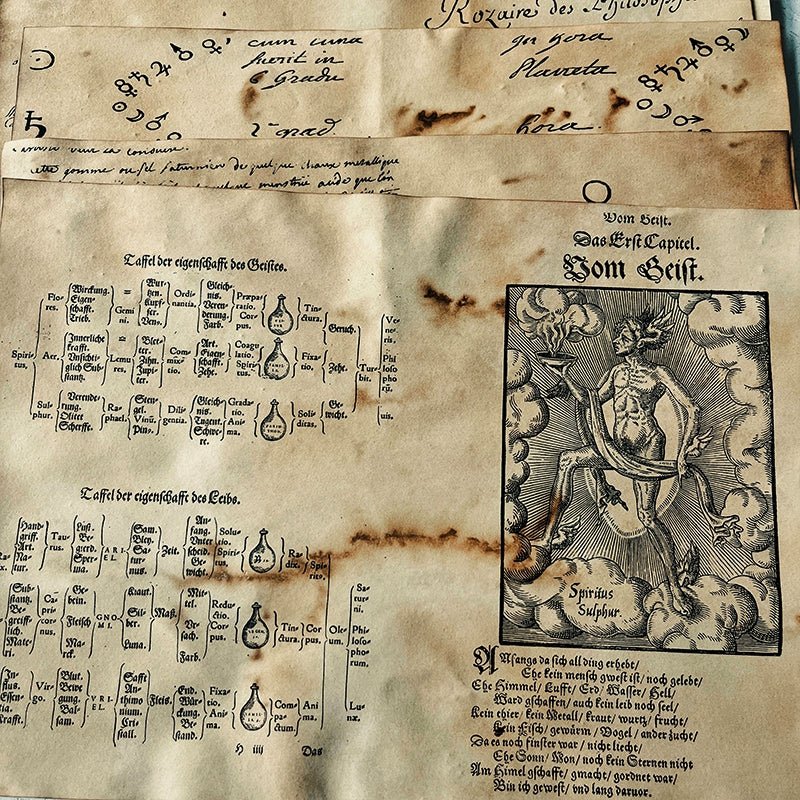 Rozaire des Philosoph
cum luna
fuerit in
6 Gradu
In hora
Planeta
2 grad
hora
cette gomme ou sel saturnien de quelque chaux metallique
menstrue
que l'on
Taffel der eigenschafft des Geistes.
Spiri-
tus,
Flo-
res.
Aer.
Sul-
phur.
Wirckung.
Eigen-
schafft.
Trieb.
Gemi
ni.
Wur-
tzen.
Kupf-
fer.
Ven9.
Ordi-
nantia.
Gleich-
nis.
Veren-
derung.
Farb.
Præpa-
ratio.
Cor-
pus.
Tin-
ctura.
Geruch.
Innerliche
krafft.
Unsichti-
glich Sub-
stantz.
Lemu-
res.
Blet-
ter.
Zihn.
Jupi-
ter.
Com-
mix-
tio.
Art.
Eigen-
schafft.
Zehe.
Coagu
latio.
Spiri-
tus.
Fixa-
tio.
Zeht.
Tur-
bis.
Verende-
rung.
Olitet
Scherffe.
Ra-
phael.
Sten-
gel.
Vinū.
Pin9.
Dili-
gentia.
Gleich-
nis.
Tugent.
Schwe-
re.
Grada-
tio.
Ani-
ma.
Soli-
ditas.
Ge-
wicht.
Ve-
ne-
ris.
Phi
los
opho
rū.
uis.
Taffel der eigenschafft des Leibs.
Hand-
griff.
Art.
Na-
tur.
Tau-
rus.
Lufft.
Be-
gierd.
Sper-
ma.
ARI
EL.
Sam.
Bley.
Sa-
tur-
nus.
Zeit.
An-
fang.
Unter
scheid.
Ge-
wicht.
Solu-
tio.
Spiri-
tus.
Ra-
dix.
Spi-
ritus.
Sub-
stantz.
Be-
greiff-
lich.
Mate-
ri.
Ca-
pri-
cor-
nus.
Ge-
bein.
Fleisch
Mu-
mia.
GNO
MI.
Kraut.
Sil-
ber.
Luna.
Maß.
Mit-
tel.
Ur-
sach.
Farb.
Redu-
ctio.
Cor-
pus.
Tin-
ctura.
Cor-
pus.
Ole-
um.
Sa-
tur-
ni.
Phi-
loso-
pho-
rum.
Lu-
næ.
In-
flus.
Essen-
tia.
Krafft.
Vir-
go.
Blut.
Bewe
gung.
Bal-
sam.
VRI
EL.
Safft
An-
thimo
nium.
Cri-
stall.
Fleis.
End.
Wür-
ckung.
Be-
stand.
Fixa-
tio.
Ani-
ma.
Com-
pa-
ctum.
Ani
ma.
H iiij
Das
Vom Geist.
Das Erst Capitel.
Vom Geist.
Spiritus
Sulphur.
ANfangs da sich all ding erhebt/
Ehe kein mensch gwest ist/ noch gelebt/
Ehe Himmel/ Lufft/ Erd/ Wasser/ Hell/
Ward gschaffen/ auch kein leib noch seel/
Kein thier/ kein Metall/ kraut/ wurtz/ frucht/
Kein Fisch/ gewürm/ Vogel/ ander zucht/
Da es noch finster war/ nicht liecht/
Ehe Sonn/ Mon/ noch kein Sternen nicht
Am Himel gschafft/ gmacht/ gordnet war/
Bin ich gewest/ vnd lang daruor.